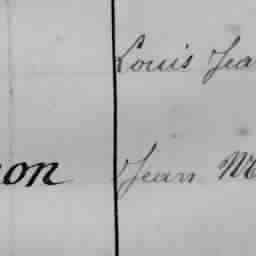 Louis Jea
on Jean M